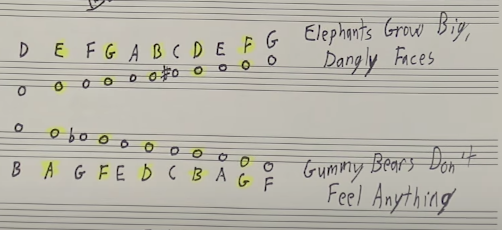 D E F G A B C D E F G
Elephants Grow Big,
Dangly Faces
B A G F E D C B A G F
Gummy Bears Don't
Feel Anything